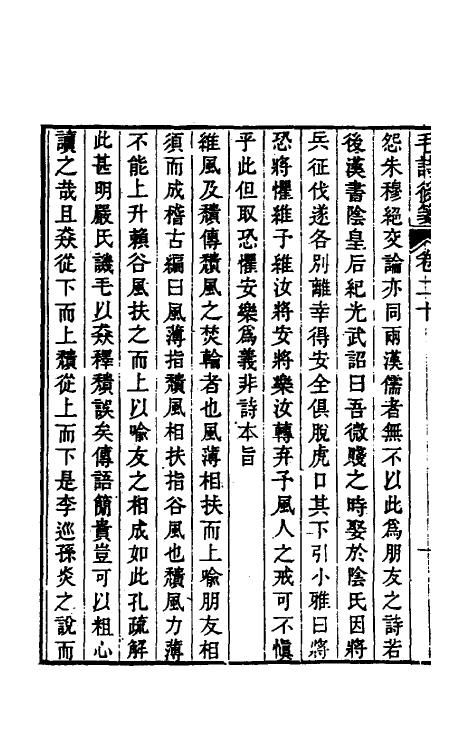 毛詩後箋 卷二十
怨朱穆絕交論亦同兩漢儒者無不以此爲朋友之詩若
後漢書陰皇后紀光武詔曰吾微賤之時娶於陰氏因將
兵征伐遂各別離幸得安全俱脫虎口其下引小雅曰將
恐將懼維予維汝將安將樂汝轉弃予風人之戒可不愼
乎此但取恐懼安樂爲義非詩本旨
維風及穨傳穨風之焚輪者也風薄相扶而上喻朋友相
須而成稽古編曰風薄指穨風相扶指谷風也穨風力薄
不能上升賴谷風扶之而上以喻友之相成如此孔疏解
此甚明嚴氏譏毛以猋釋穨誤矣傳語簡貴豈可以粗心
讀之哉且猋從下而上穨從上而下是李巡孫炎之說而